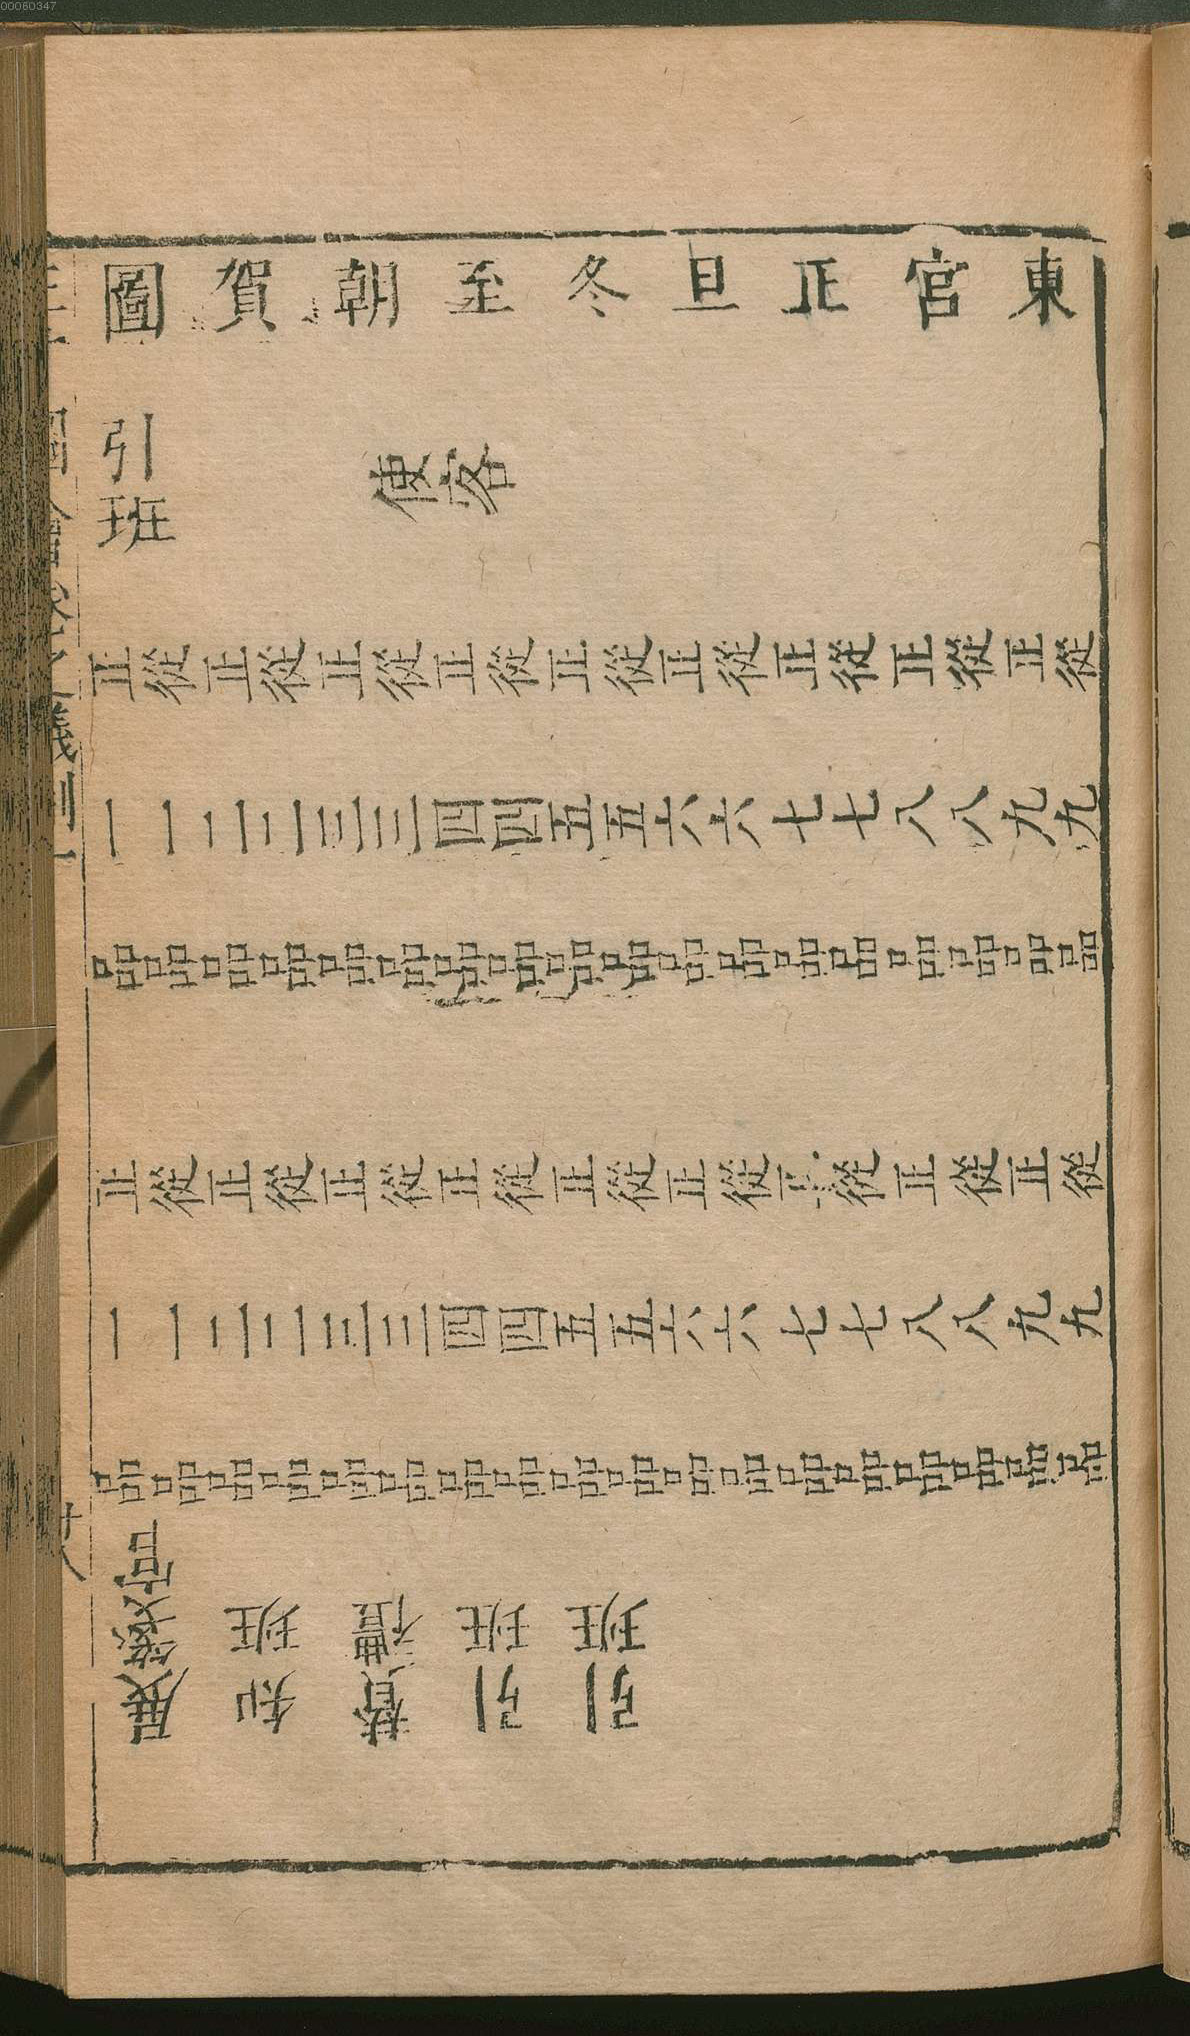 東官正旦冬至朝賀圖
引班
使客
正一品
從一品
正二品
從二品
正三品
從三品
正四品
從四品
正五品
從五品
正六品
從六品
正七品
從七品
正八品
從八品
正九品
從九品
正一品
從一品
正二品
從二品
正三品
從三品
正四品
從四品
正五品
從五品
正六品
從六品
正七品
從七品
正八品
從八品
正九品
從九品
展箋官
知班
贊禮
引班
引班
十八
00060347